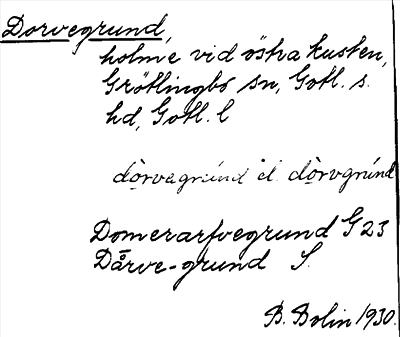 Dorvegrund,
holme vid östra kusten,
Grötlingbo sn, Gotl. s.
hd, Gotl. l
dòrvagrúnd el. dòrvgrúnd
Domerarfvegrund G 23
Dårve-grund S.
B. Bolin 1930.